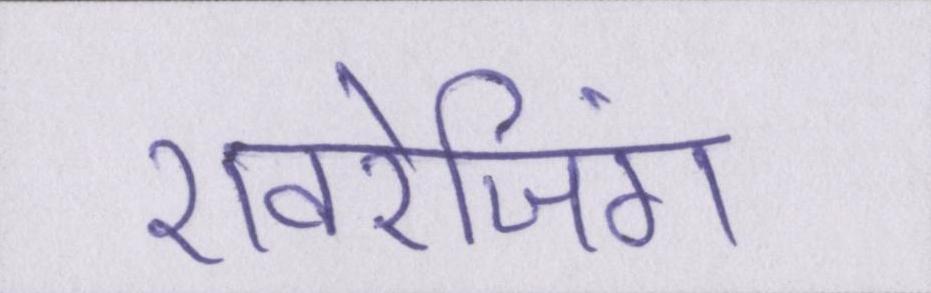 एवरेजिंग